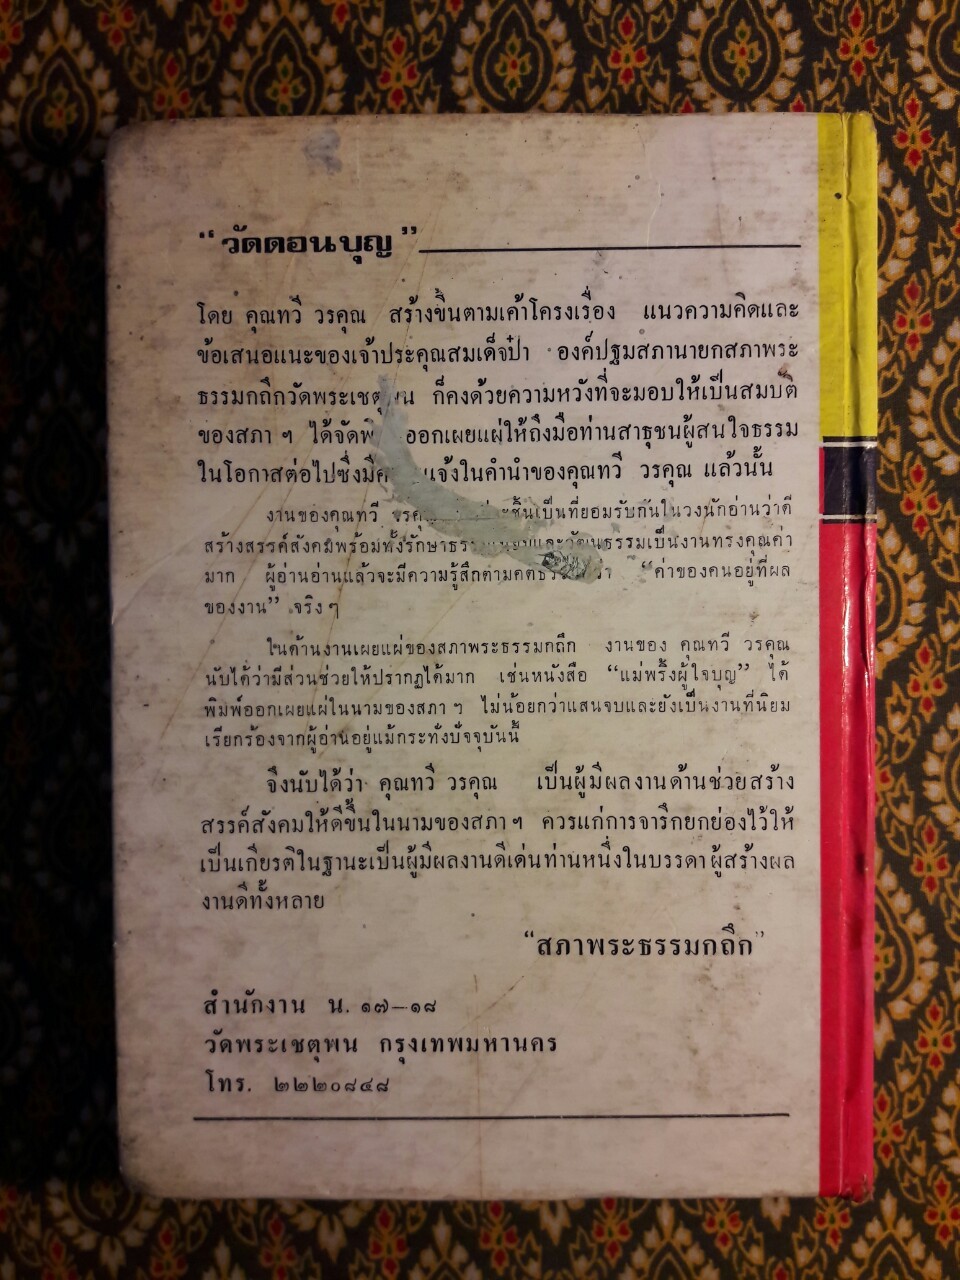 “วัดดอนบุญ”
โดย คุณทวี วรคุณ สร้างขึ้นตามเค้าโครงเรื่อง แนวความคิดและ
ข้อเสนอแนะของเจ้าประคุณสมเด็จป๋า องค์ปฐมสภานายกสภาพระ
ธรรมกถึกวัดพระเชตุพน ก็คงด้วยความหวังที่จะมอบให้เป็นสมบัติ
ของสภา ฯ ได้จัด ออกเผยแผ่ให้ถึงมือท่านสาธุชนผู้สนใจธรรม
ในโอกาสต่อไปซึ่งมี แจ้งในคำนำของคุณทวี วรคุณ แล้วนั้น
งานของคุณทวี วรคุณ ชิ้นเป็นที่ยอมรับกันในวงนักอ่านว่าดี
สร้างสรรค์สังคมพร้อมทั้งรักษาธรรมเนียมและวัฒนธรรมเป็นงานทรงคุณค่า
มาก ผู้อ่านอ่านแล้วจะมีความรู้สึกตามคติธรรมว่า “ค่าของคนอยู่ที่ผล
ของงาน” จริง ๆ
ในด้านงานเผยแผ่ของสภาพระธรรมกถึก งานของ คุณทวี วรคุณ
นับได้ว่ามีส่วนช่วยให้ปรากฏได้มาก เช่นหนังสือ “แม่พริ้งผู้ใจบุญ” ได้
พิมพ์ออกเผยแผ่ในนามของสภา ฯ ไม่น้อยกว่าแสนจบและยังเป็นงานที่นิยม
เรียกร้องจากผู้อ่านอยู่แม้กระทั่งปัจจุบันนี้
จึงนับได้ว่า คุณทวี วรคุณ เป็นผู้มีผลงานด้านช่วยสร้าง
สรรค์สังคมให้ดีขึ้นในนามของสภา ฯ ควรแก่การจารึกยกย่องไว้ให้
เป็นเกียรติในฐานะเป็นผู้มีผลงานดีเด่นท่านหนึ่งในบรรดา ผู้สร้างผล
งานดีทั้งหลาย
“สภาพระธรรมกถึก”
สำนักงาน น. ๑๗–๑๘
วัดพระเชตุพน กรุงเทพมหานคร
โทร. ๒๒๒๐๘๔๘